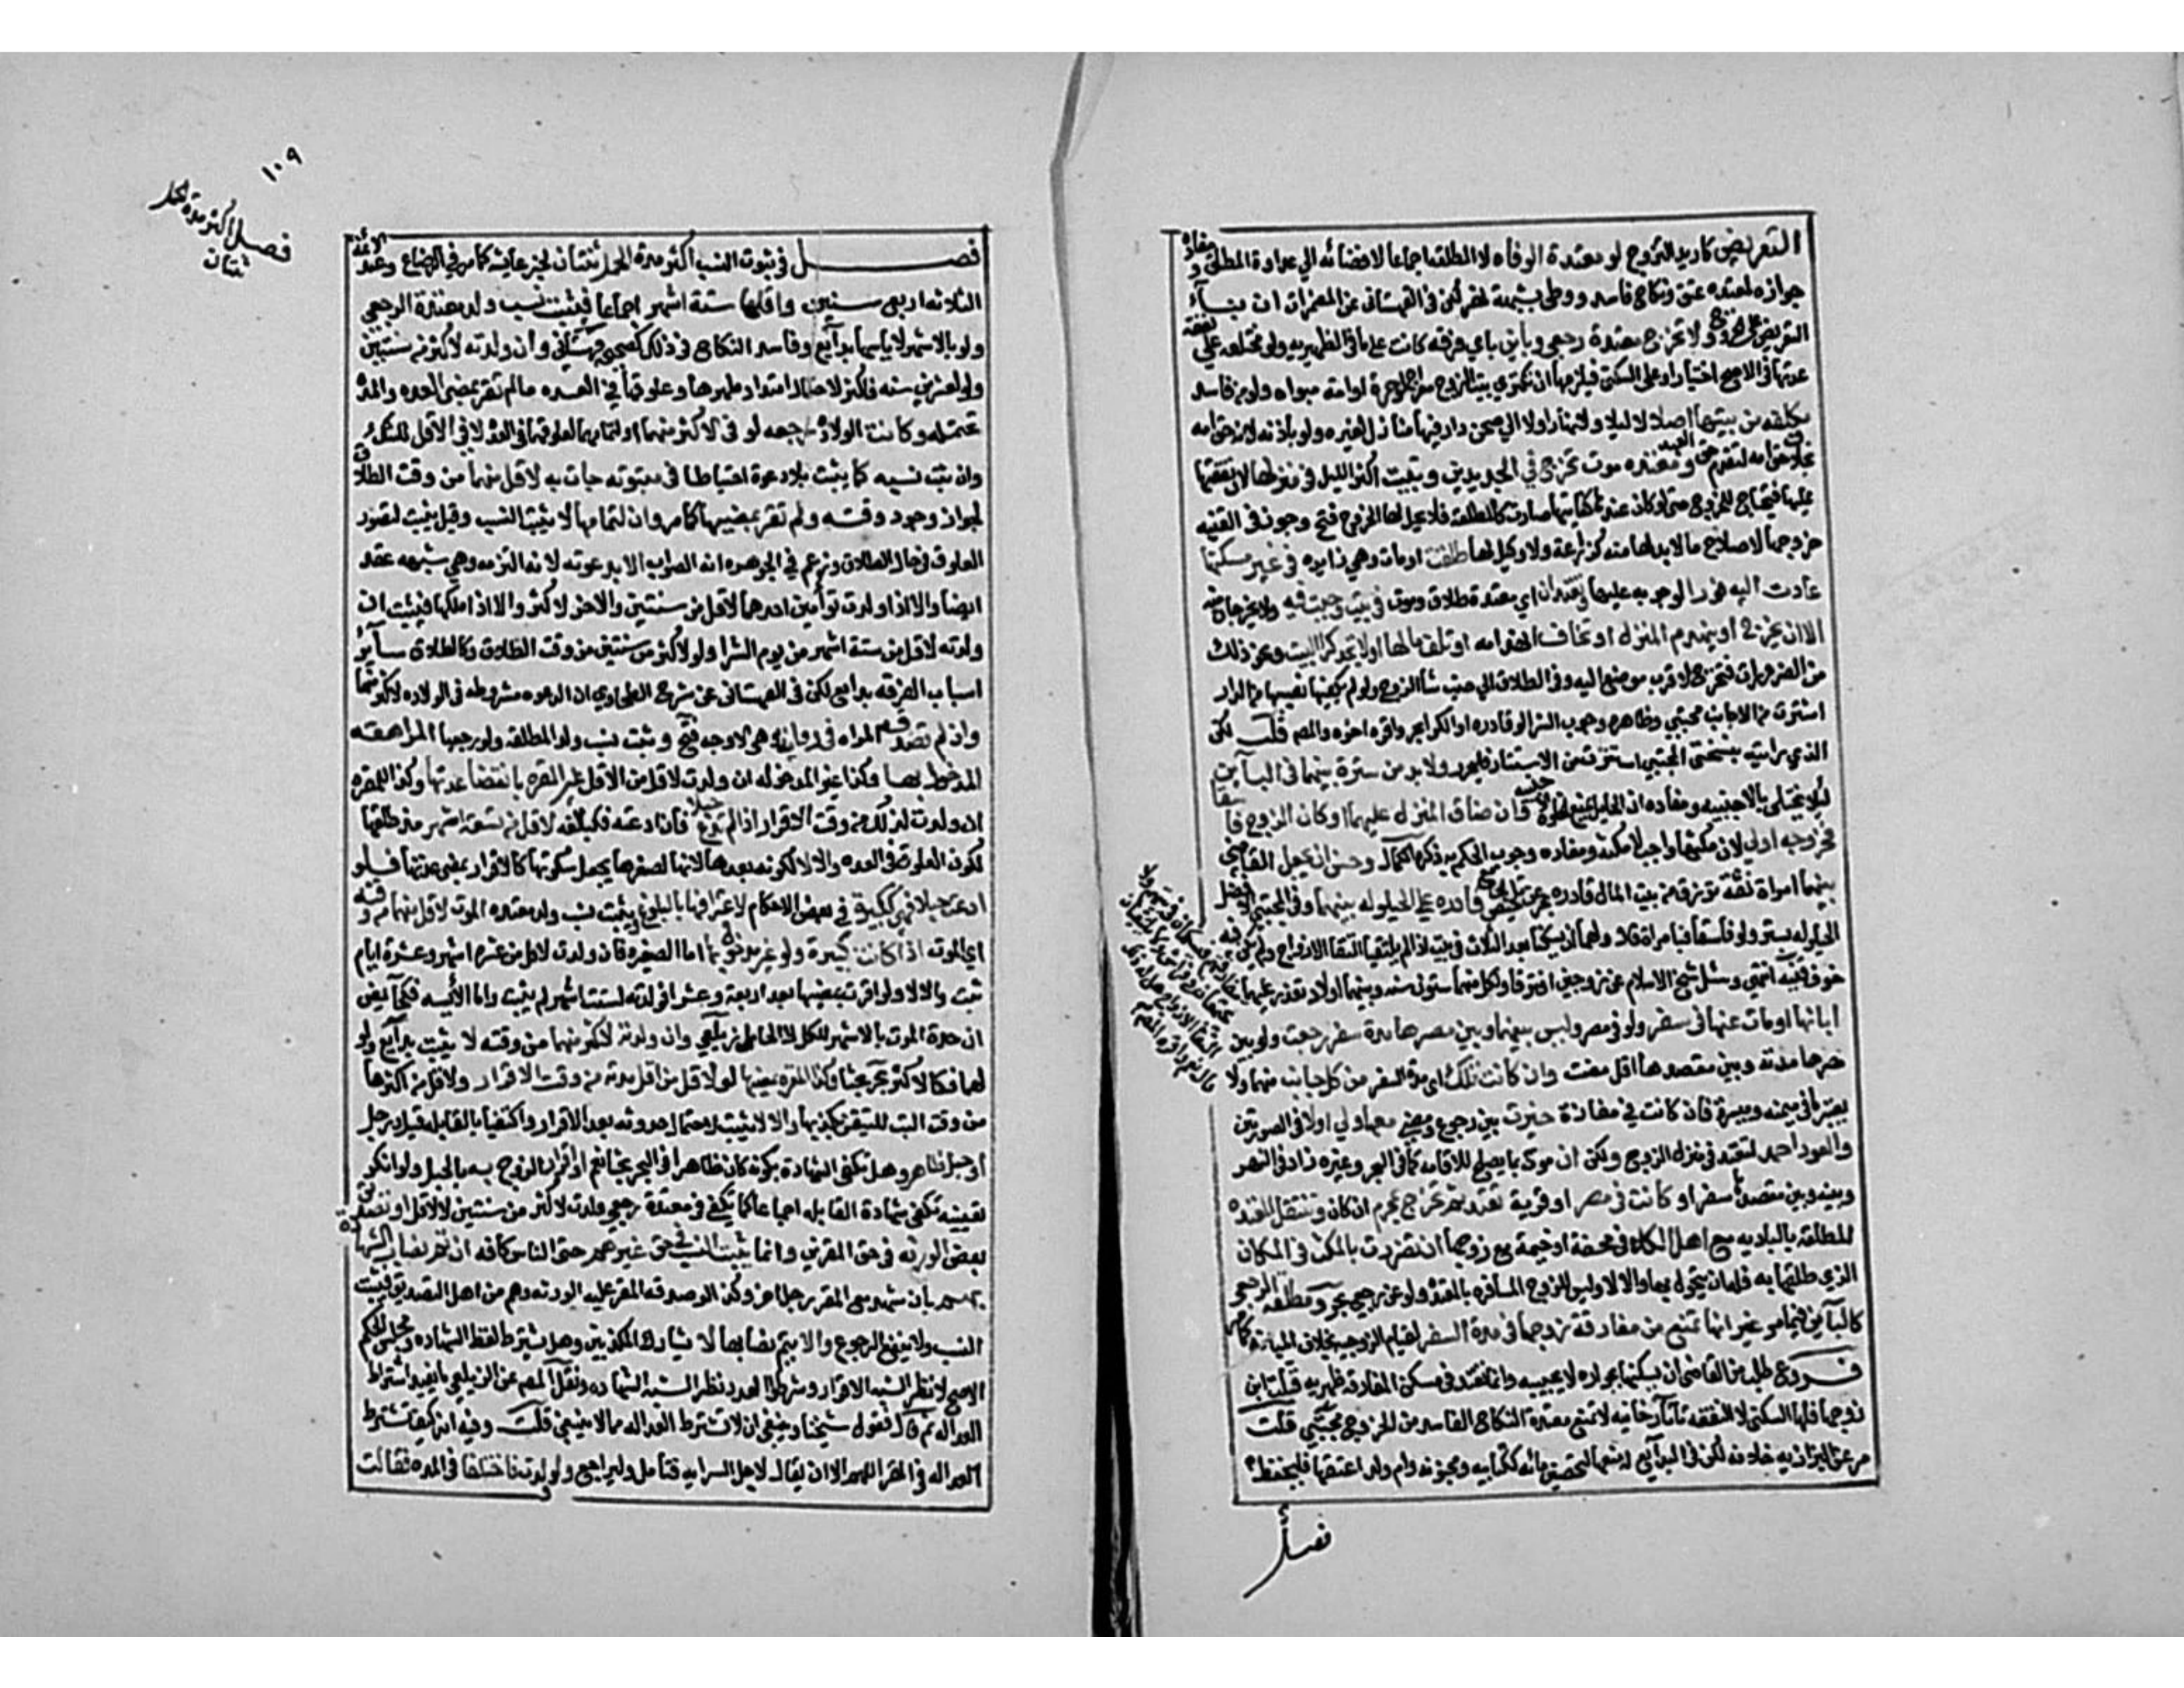 التعريض كاريد التزوج لو معتدة الوفاه لا المطلقه اجماعا لافضائه الي عداوة المطلق ومفاده
جوازه لمعتده عتق ونكاح فاسد ووطى بشبهة نهر لكن في القهستاني عن المضمرات ان بناء
التعريض على الخروج ولا تخرج معتدة رجعي وباين باي فرقه كانت على ما في الظهيريه ولو مختلعه على نفقة
عدتها في الاصح اختيار او على السكنى فيلزمها ان تكتري بيت الزوج معراج لو حرة او امة مبواه ولو من فاسد
مكلفه من بيتها اصلا لا ليلا ولا نهارا ولا الي صحن دار فيها منازل لغيره ولو باذنه لانه حق الله
بخلاف نحو امه لتقدم حق العبد ومعتده موت تخرج في الجديدين وتبيت اكثر الليل في منزلها لان نفقتها
عليها فتحتاج للخروج حتى لو كان عندها كفايتها صارت كالمطلقه فلا يحل لها الخروج فتح وجوز في القنيه
خروجها لاصلاح ما لابد لها منه كزراعة ولا وكيل لها طلقت او مات وهي زايره في غير مسكنها
عادت اليه فورا لوجوبه عليها وتعتدان اي معتدة طلاق وموت في بيت وجبت فيه ولا يخرجان منه
الا ان تخرج او ينهدم المنزل او تخاف انهدامه او تلف مالها او لا تجد كرا البيت ونحو ذلك
من الضرورات فتخرج لاقرب موضع اليه وفي الطلاق الي حيث شا الزوج ولو لم يكفها نصيبها من الدار
اشترت من الاجانب مجتبي وظاهره وجوب الشرا لو قادره او الكرا بحر واقره اخوه والمص قلت لكن
الذي رايته بنسختي المجتبي استترت من الاستتار فليحرر ولا بد من سترة بينهما في الباين
ليلا يختلي بالاجنبيه ومفاده ان الحايل يمنع الخلوة وان ضاق المنزل عليهما او كان الزوج فاسقا
فخروجه اولي لان مكثها واجب لا مكثه ومفاده وجوب الحكم به ذكره الكمال وحسن ان يجعل القاضي
بينهما امراة ثقة ترزق من بيت المال قادره على الحيلوله بينهما وفي المجتبي الافضل
الحيلوله بستر ولو فاسقا فبامراة قال ولهما ان يسكنا بعد الثلاث في بيت اذا لم يلتقيا التقا الازواج ولم يكن فيه
خوف فتنه انتهي وسئل شيخ الاسلام عن زوجين افترقا ولكل منهما ستون سنه وبينهما اولاد تتعذر عليهما
ابانها او مات عنها في سفر ولو في مصر وليس بينها وبين مصرها مدة سفر رجعت ولو بين
مصرها مدته وبين مقصدها اقل مضت وان كانت تلك اي مدة السفر من كل جانب منهما ولا
يعتبر ما في ميمنه وميسرة فان كانت في مفازة خيرت بين رجوع ومضي معها ولي اولا في الصورتين
والعود احمد لتعتد في منزل الزوج ولكن ان مرت بما يصلح للاقامه كما في البحر وغيره زاد في النهر
وبينه وبين مقصدها سفر او كانت في مصر او قرية تعتد ثم تخرج بمحرم ان كان وتنتقل المعتده
المطلقه بالباديه مع اهل الكلا في محفة او خيمة مع زوجها ان تضررت بالمكث في المكان
الذي طلقها به فله ان يتحول بها والا لا وليس للزوج المسافره بالمعتدة ولو عن رجعي بحر ومطلقه الرجعي
كالباين فيما مر غير انها تمنع من مفارقة زوجها في مدة السفر لقيام الزوجيه بخلاف المبانه كما مر
فروع طلب من القاضي ان يسكنها بجواره لا يجيبه وانما تعتد في مسكن المفارقه ظهيريه قبلت ابن
زوجها فلها السكنى لا النفقه تاتارخانيه لا تمنع معتدة النكاح الفاسد من الخروج مجتبي قلت
مر عن البزازيه خلافه لكن في البدايع لها منعها لتحصين مائه ككتابيه ومجنونه وام ولد اعتقها فليحفظ
فصل
١٠٩
فصل اكثر مدة الحمل
سنتان
فصل في ثبوت النسب اكثر مدة الحمل سنتان لخبر عايشه كما مر في الرضاع وعند الائمة
الثلاثه اربع سنين واقلها ستة اشهر اجماعا فيثبت نسب ولد معتدة الرجعي
ولو بالاشهر لاياسها بدايع وفاسد النكاح في ذلك كصحيحه قهستاني وان ولدته لاكثر من سنتين
ولو لعشرين سنه فاكثر لاحتمال امتداد طهرها وعلوقها في العده ما لم تقر بمضي العده والمدة
تحتمله وكانت الولادة رجعه لو في الاكثر منهما او لتمامهما لعلوقها في العدة لا في الاقل للشك
وان ثبت نسبه كما يثبت بلا دعوة احتياطا في مبتوته جات به لاقل منهما من وقت الطلاق
لجواز وجوده وقته ولم تقر بمضيها كما مر وان لتمامها لا يثبت النسب وقيل يثبت لتصور
العلوق في حال الطلاق وزعم في الجوهره انه الصواب الا بدعوته لانه التزمه وهي شبهه عقد
ايضا والا اذا ولدت توامين احدهما لاقل من سنتين والاخر لاكثر والا اذا ملكها فيثبت ان
ولدته لاقل من ستة اشهر من يوم الشرا ولو لاكثر من سنتين من وقت الطلاق وكالطلاق ساير
اسباب الفرقه بدايع لكن في القهستاني عن شرح الطحاوي ان الدعوه مشروطه في الولاده لاكثر منهما
وان لم تصدقه المراه في رواية هي الاوجه فتح ويثبت نسب ولد المطلقه ولو رجعيا المراهقه
المدخول بها وكذا غير المدخوله ان ولدت لاقل من الاقل غير المقره بانقضا عدتها وكذا المقره
ان ولدت لذلك من وقت الاقرار اذا لم تدع حبلا فان ادعته فكبالغه لاقل من تسعة اشهر مذ طلقها
لكون العلوق في العده والا لا لكونه بعدها لانها لصغرها يجعل سكوتها كالاقرار بمضي عدتها فلو
ادعت حبلا فهي ككبيرة في بعض الاحكام لاعترافها بالبلوغ ويثبت نسب ولد معتده الموت لاقل منهما من وقته
اي الموت اذا كانت كبيرة ولو غير مدخول بها اما الصغيره فان ولدت لاقل من عشرة اشهر وعشرة ايام
ثبت والا لا ولو اقرت بمضيها بعد اربعة وعشر فولدته لستة اشهر لم يثبت واما الايسه فكحايض
ان عدة الموت بالاشهر للكل الا الحامل زيلعي وان ولدته لاكثر منهما من وقته لا يثبت بدايع ولو
لهما فكالاكثر بحر بحثا وكذا المقره بمضيها لو لاقل من اقل مدته من وقت الاقرار ولاقل من اكثرها
من وقت البت للتيقن بكذبها والا لا يثبت لاحتمال حدوثه بعد الاقرار واكتفيا بالقابله قيل برجل
او حبل ظاهر وهل تكفى الشهادة بكونه كان ظاهرا في البحر بحثا نعم او اقرار الزوج به بالحبل ولو انكر
تعيينه تكفى شهادة القابله اجماعا كما يكفي في معتدة رجعي ولدت لاكثر من سنتين لا لاقل او تصديق
بعض الورثه في حق المقرين وانما يثبت النسب في حق غيرهم حتى الناس كافه ان تم نصاب الشهاده
بهم بان شهد مع المقر رجل اخر وكذا لو صدقه المقر عليه الورثه وهم من اهل التصديق فيثبت
النسب ولا ينفع الرجوع والا يتم نصابها لا يشارك المكذبين وهل يشترط لفظ الشهاده ومجلس الحكم
الاصح لا نظرا لشبه الاقرار وشرطوا العدد نظرا لشبه الشهاده ونقل المص عن الزيلعي ما يفيد اشتراط
العداله ثم قال فقول شيخنا وينبغي ان لا تشترط العداله مما لا ينبغي قلت وفيه انه كيف تشترط
العداله في المقر اللهم الا ان يقال لاجل السرايه فتامل وليراجع ولو ولدت فاختلفا في المده فقالت